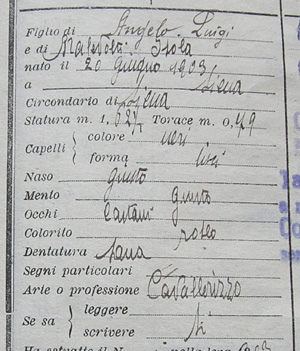 Figlio di Angelo Luigi
e di
nato il 20 giugno 1903
a Siena
Circondario di Siena
Statura m. 1, 62½ Torace m. 0,79
Capelli { colore neri
forma lisci
Naso giusto
Mento giusto
Occhi castani
Colorito roseo
Dentatura sana
Segni particolari
Arte o professione Cavallerizzo
Se sa { leggere
scrivere si
Ha estratto il N.